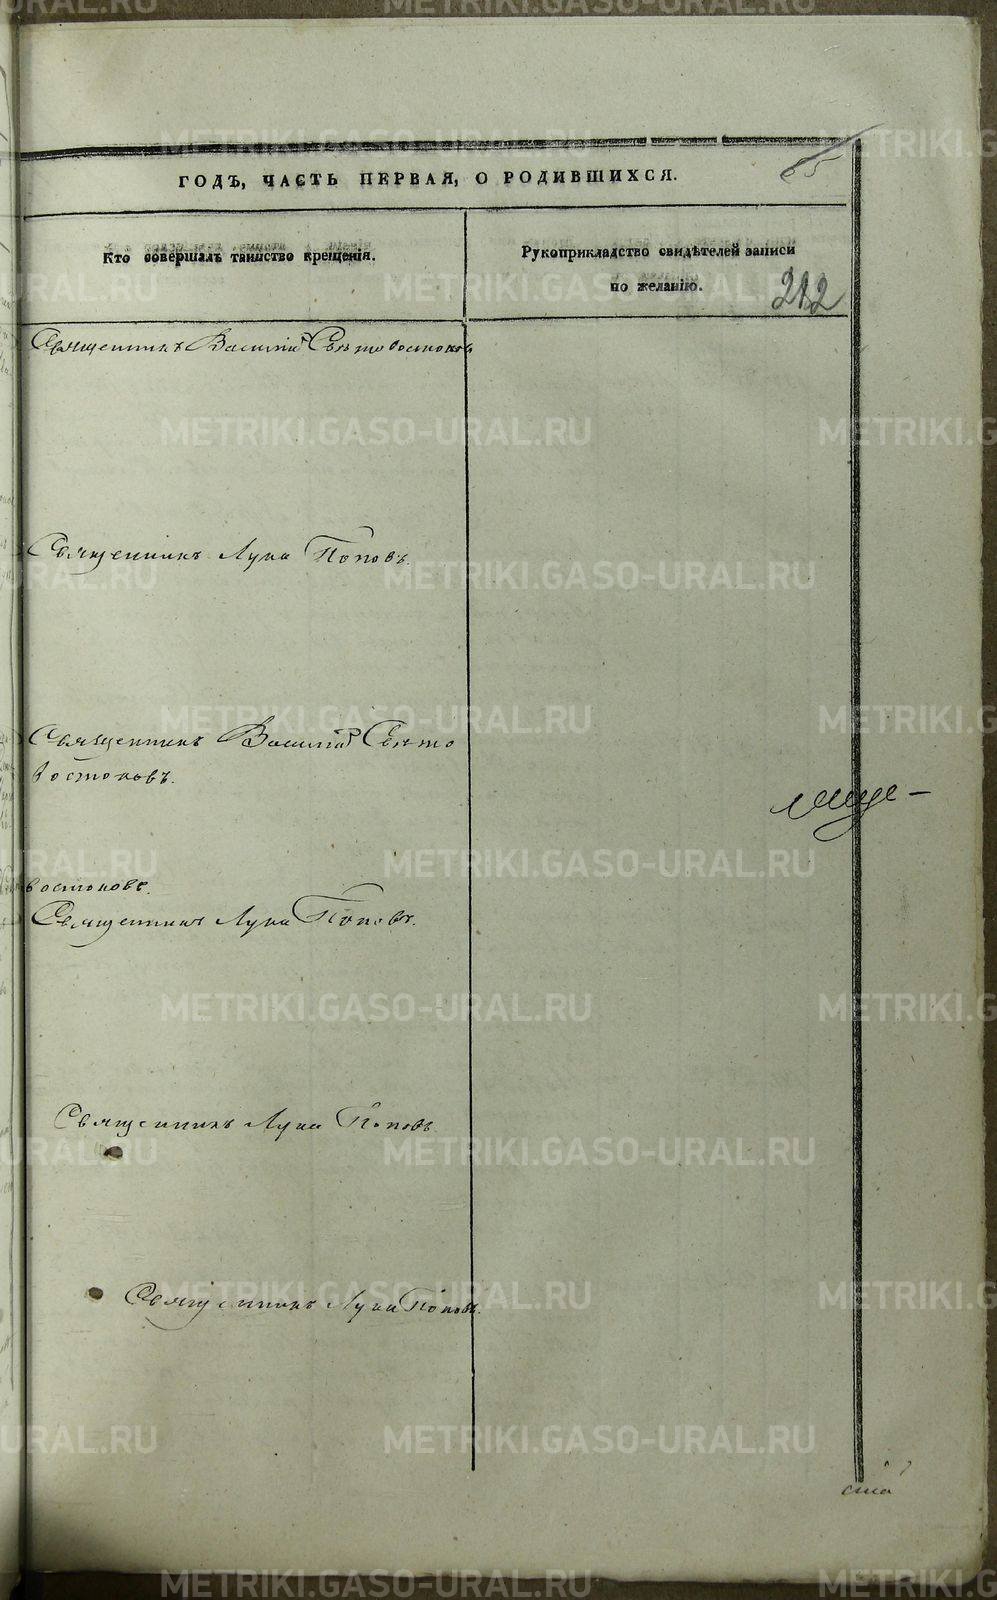 METRIKI.GASO-URAL.RU
65
ГОДЪ, ЧАСТЬ ПЕРВАЯ, О РОДИВШИХСЯ.
Кто совершалъ таинство крещенія.
Рукоприкладство свидѣтелей записи
по желанію.
212
Священникъ Василій Свѣтовостоковъ
Священникъ Лука Поповъ.
Священникъ Василій Свѣто
востоковъ.
востоковъ.
Священникъ Лука Поповъ.
Священникъ Лука Поповъ
Священникъ Лука Поповъ.